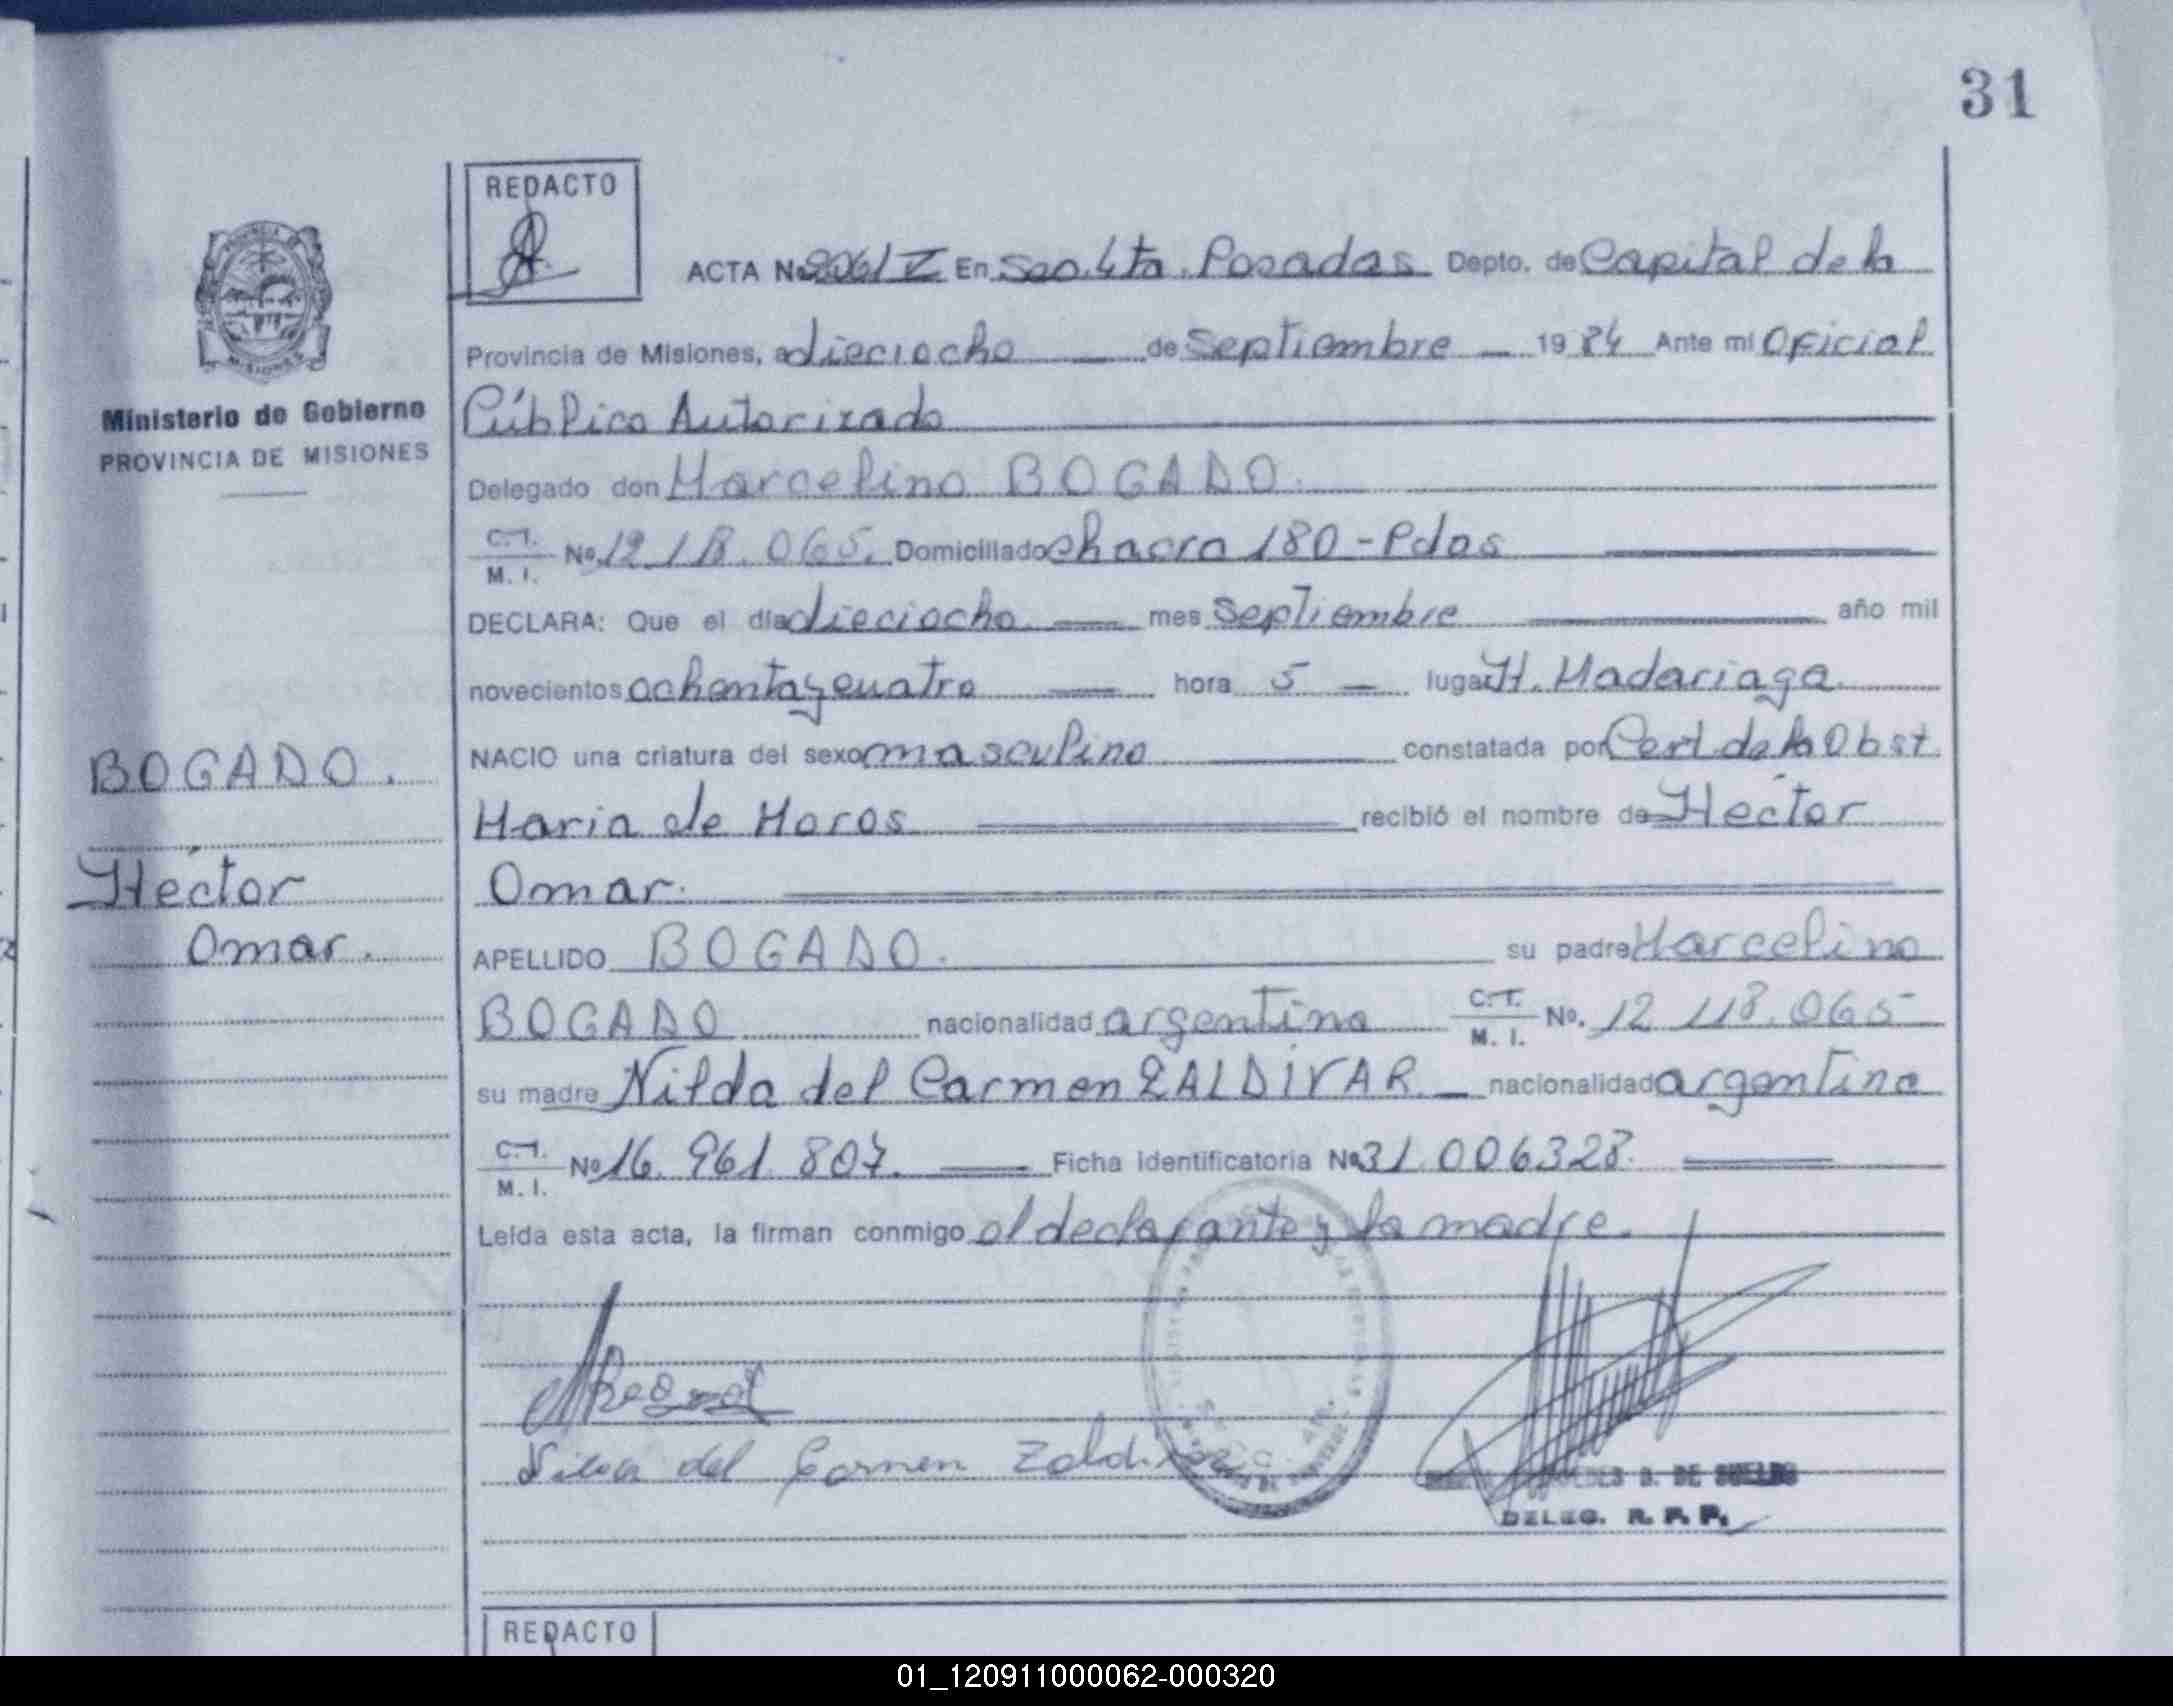 31
REDACTO
ACTA No 2061 Z En Secc. 4ta. Posadas Depto. de Capital de la
Provincia de Misiones, a dieciocho de septiembre 1984 Ante mi Oficial
Público Autorizado
Ministerio de Gobierno
PROVINCIA DE MISIONES
Delegado don Marcelino BOGADO.
C.I. M.I. No. 12.118.065. Domiciliado chacra 180-Pdas
DECLARA: Que el día dieciocho mes septiembre año mil
novecientos ochenta y cuatro hora 5 lugar H. Madariaga
NACIO una criatura del sexo masculino constatada por Cert. de la Obst.
BOGADO.
Maria de Moros recibió el nombre de Héctor
Héctor
Omar.
Omar.
APELLIDO BOGADO. su padre Marcelino
BOGADO nacionalidad argentina C.I. M.I. No. 12 118.065
su madre Nilda del Carmen ZALDÍVAR nacionalidad argentina
C.I. M.I. No 16.961.807. Ficha Identificatoria No 31.006328.
Leída esta acta, la firman conmigo el declarante y la madre.
Nilda del Carmen Zaldivar
DE SUELDO
DELEG. R. P. P.
REDACTO
01_120911000062-000320